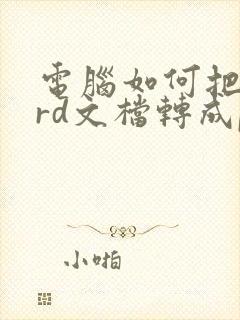 電腦如何把
rd文檔轉成
小啪